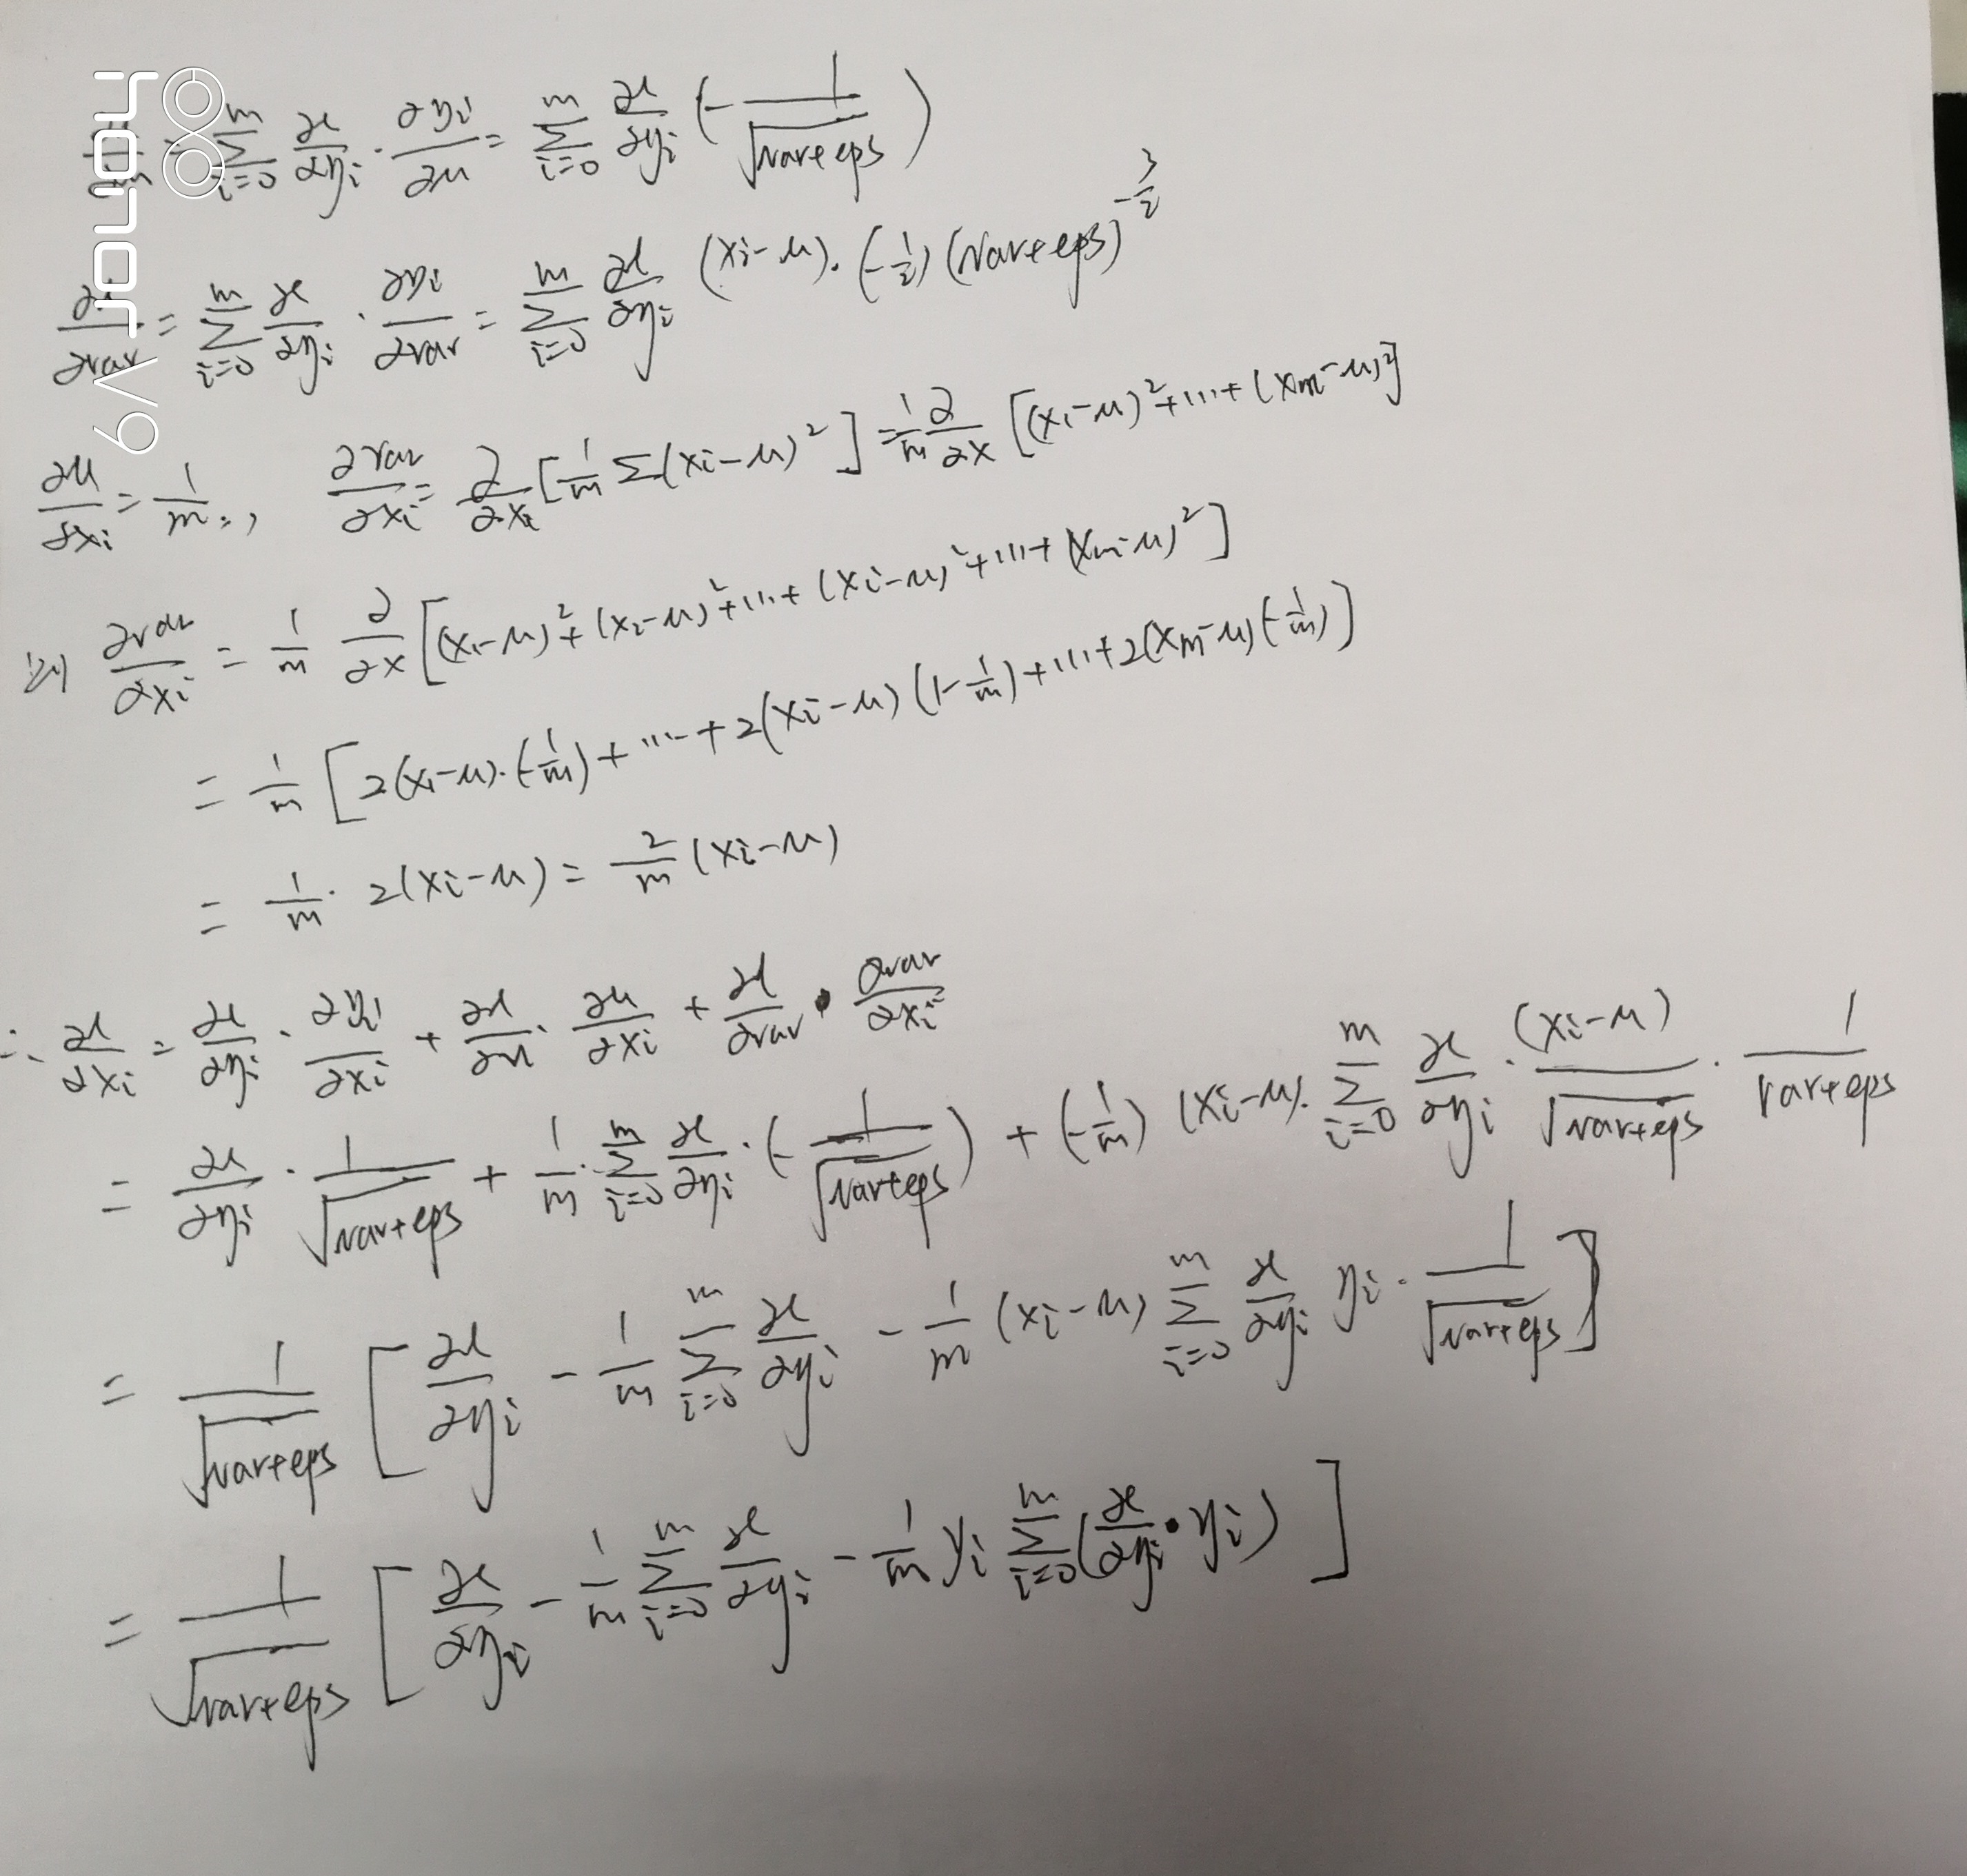 honor V9
∂l/∂μ = Σ_{i=0}^{m} ∂l/∂y_i · ∂y_i/∂μ = Σ_{i=0}^{m} ∂l/∂y_i (- 1/√(var+eps))
∂l/∂var = Σ_{i=0}^{m} ∂l/∂y_i · ∂y_i/∂var = Σ_{i=0}^{m} ∂l/∂y_i (x_i-μ)·(-1/2)(var+eps)^{-3/2}
∂μ/∂x_i = 1/m, ∂var/∂x_i = ∂/∂x_i [1/m Σ(x_i-μ)²] = 1/m ∂/∂x [(x_1-μ)²+···+(x_m-μ)²]
则 ∂var/∂x_i = 1/m ∂/∂x [(x_1-μ)²+(x_2-μ)²+···+(x_i-μ)²+···+(x_m-μ)²]
= 1/m [2(x_1-μ)·(-1/m)+···+2(x_i-μ)(1-1/m)+···+2(x_m-μ)(-1/m)]
= 1/m · 2(x_i-μ) = 2/m (x_i-μ)
∴ ∂l/∂x_i = ∂l/∂y_i · ∂y_i/∂x_i + ∂l/∂μ · ∂μ/∂x_i + ∂l/∂var · ∂var/∂x_i
= ∂l/∂y_i · 1/√(var+eps) + 1/m · Σ_{i=0}^{m} ∂l/∂y_i · (- 1/√(var+eps)) + (-1/m) (x_i-μ) · Σ_{i=0}^{m} ∂l/∂y_i · (x_i-μ)/√(var+eps) · 1/(var+eps)
= 1/√(var+eps) [∂l/∂y_i - 1/m Σ_{i=0}^{m} ∂l/∂y_i - 1/m (x_i-μ) Σ_{i=0}^{m} ∂l/∂y_i y_i · 1/√(var+eps)]
= 1/√(var+eps) [∂l/∂y_i - 1/m Σ_{i=0}^{m} ∂l/∂y_i - 1/m y_i Σ_{i=0}^{m} (∂l/∂y_i · y_i)]